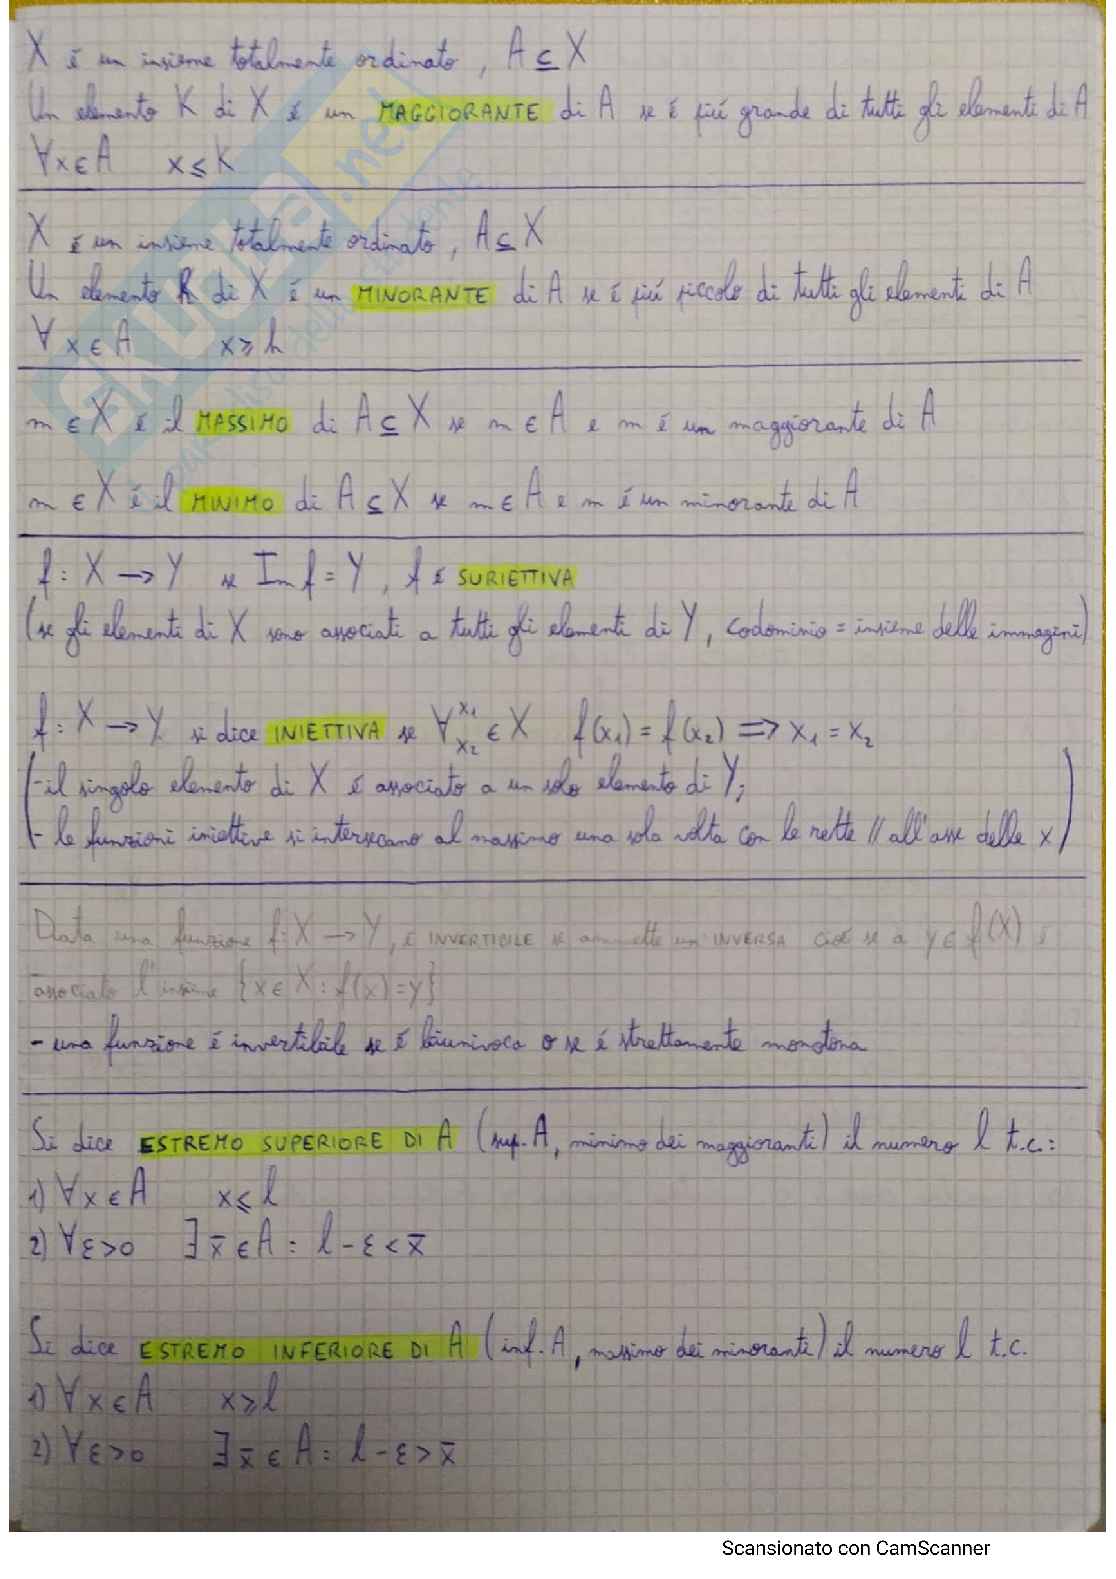 X é un insieme totalmente ordinato, A ⊆ X
Un elemento K di X é un MAGGIORANTE di A se é piú grande di tutti gli elementi di A
∀x∈A x≤K
X é un insieme totalmente ordinato, A⊆X
Un elemento h di X é un MINORANTE di A se é piú piccolo di tutti gli elementi di A
∀x∈A x≥h
m∈X é il MASSIMO di A⊆X se m∈A e m é un maggiorante di A
m∈X é il MINIMO di A⊆X se m∈A e m é un minorante di A
f: X → Y se Im f = Y, f é SURIETTIVA
(se gli elementi di X sono associati a tutti gli elementi di Y, codominio = insieme delle immagini)
f: X → Y si dice INIETTIVA se ∀ x₁ x₂ ∈ X f(x₁) = f(x₂) ⟹ x₁ = x₂
(- il singolo elemento di X é associato a un solo elemento di Y;
- le funzioni iniettive si intersecano al massimo una sola volta con le rette // all'asse delle x)
Data una funzione f: X → Y, é INVERTIBILE se ammette un'INVERSA cioé se a y∈ f(X) é
associato l'insieme {x∈X : f(x)=y}
- una funzione é invertibile se é biunivoca o se é strettamente monotona
Si dice ESTREMO SUPERIORE DI A (sup. A, minimo dei maggioranti) il numero l t.c.:
1) ∀x∈A x≤l
2) ∀ε>0 ∃x̄∈A : l-ε<x̄
Si dice ESTREMO INFERIORE DI A (inf. A, massimo dei minoranti) il numero l t.c.
1) ∀x∈A x≥l
2) ∀ε>0 ∃x̄∈A : l-ε>x̄
Scansionato con CamScanner